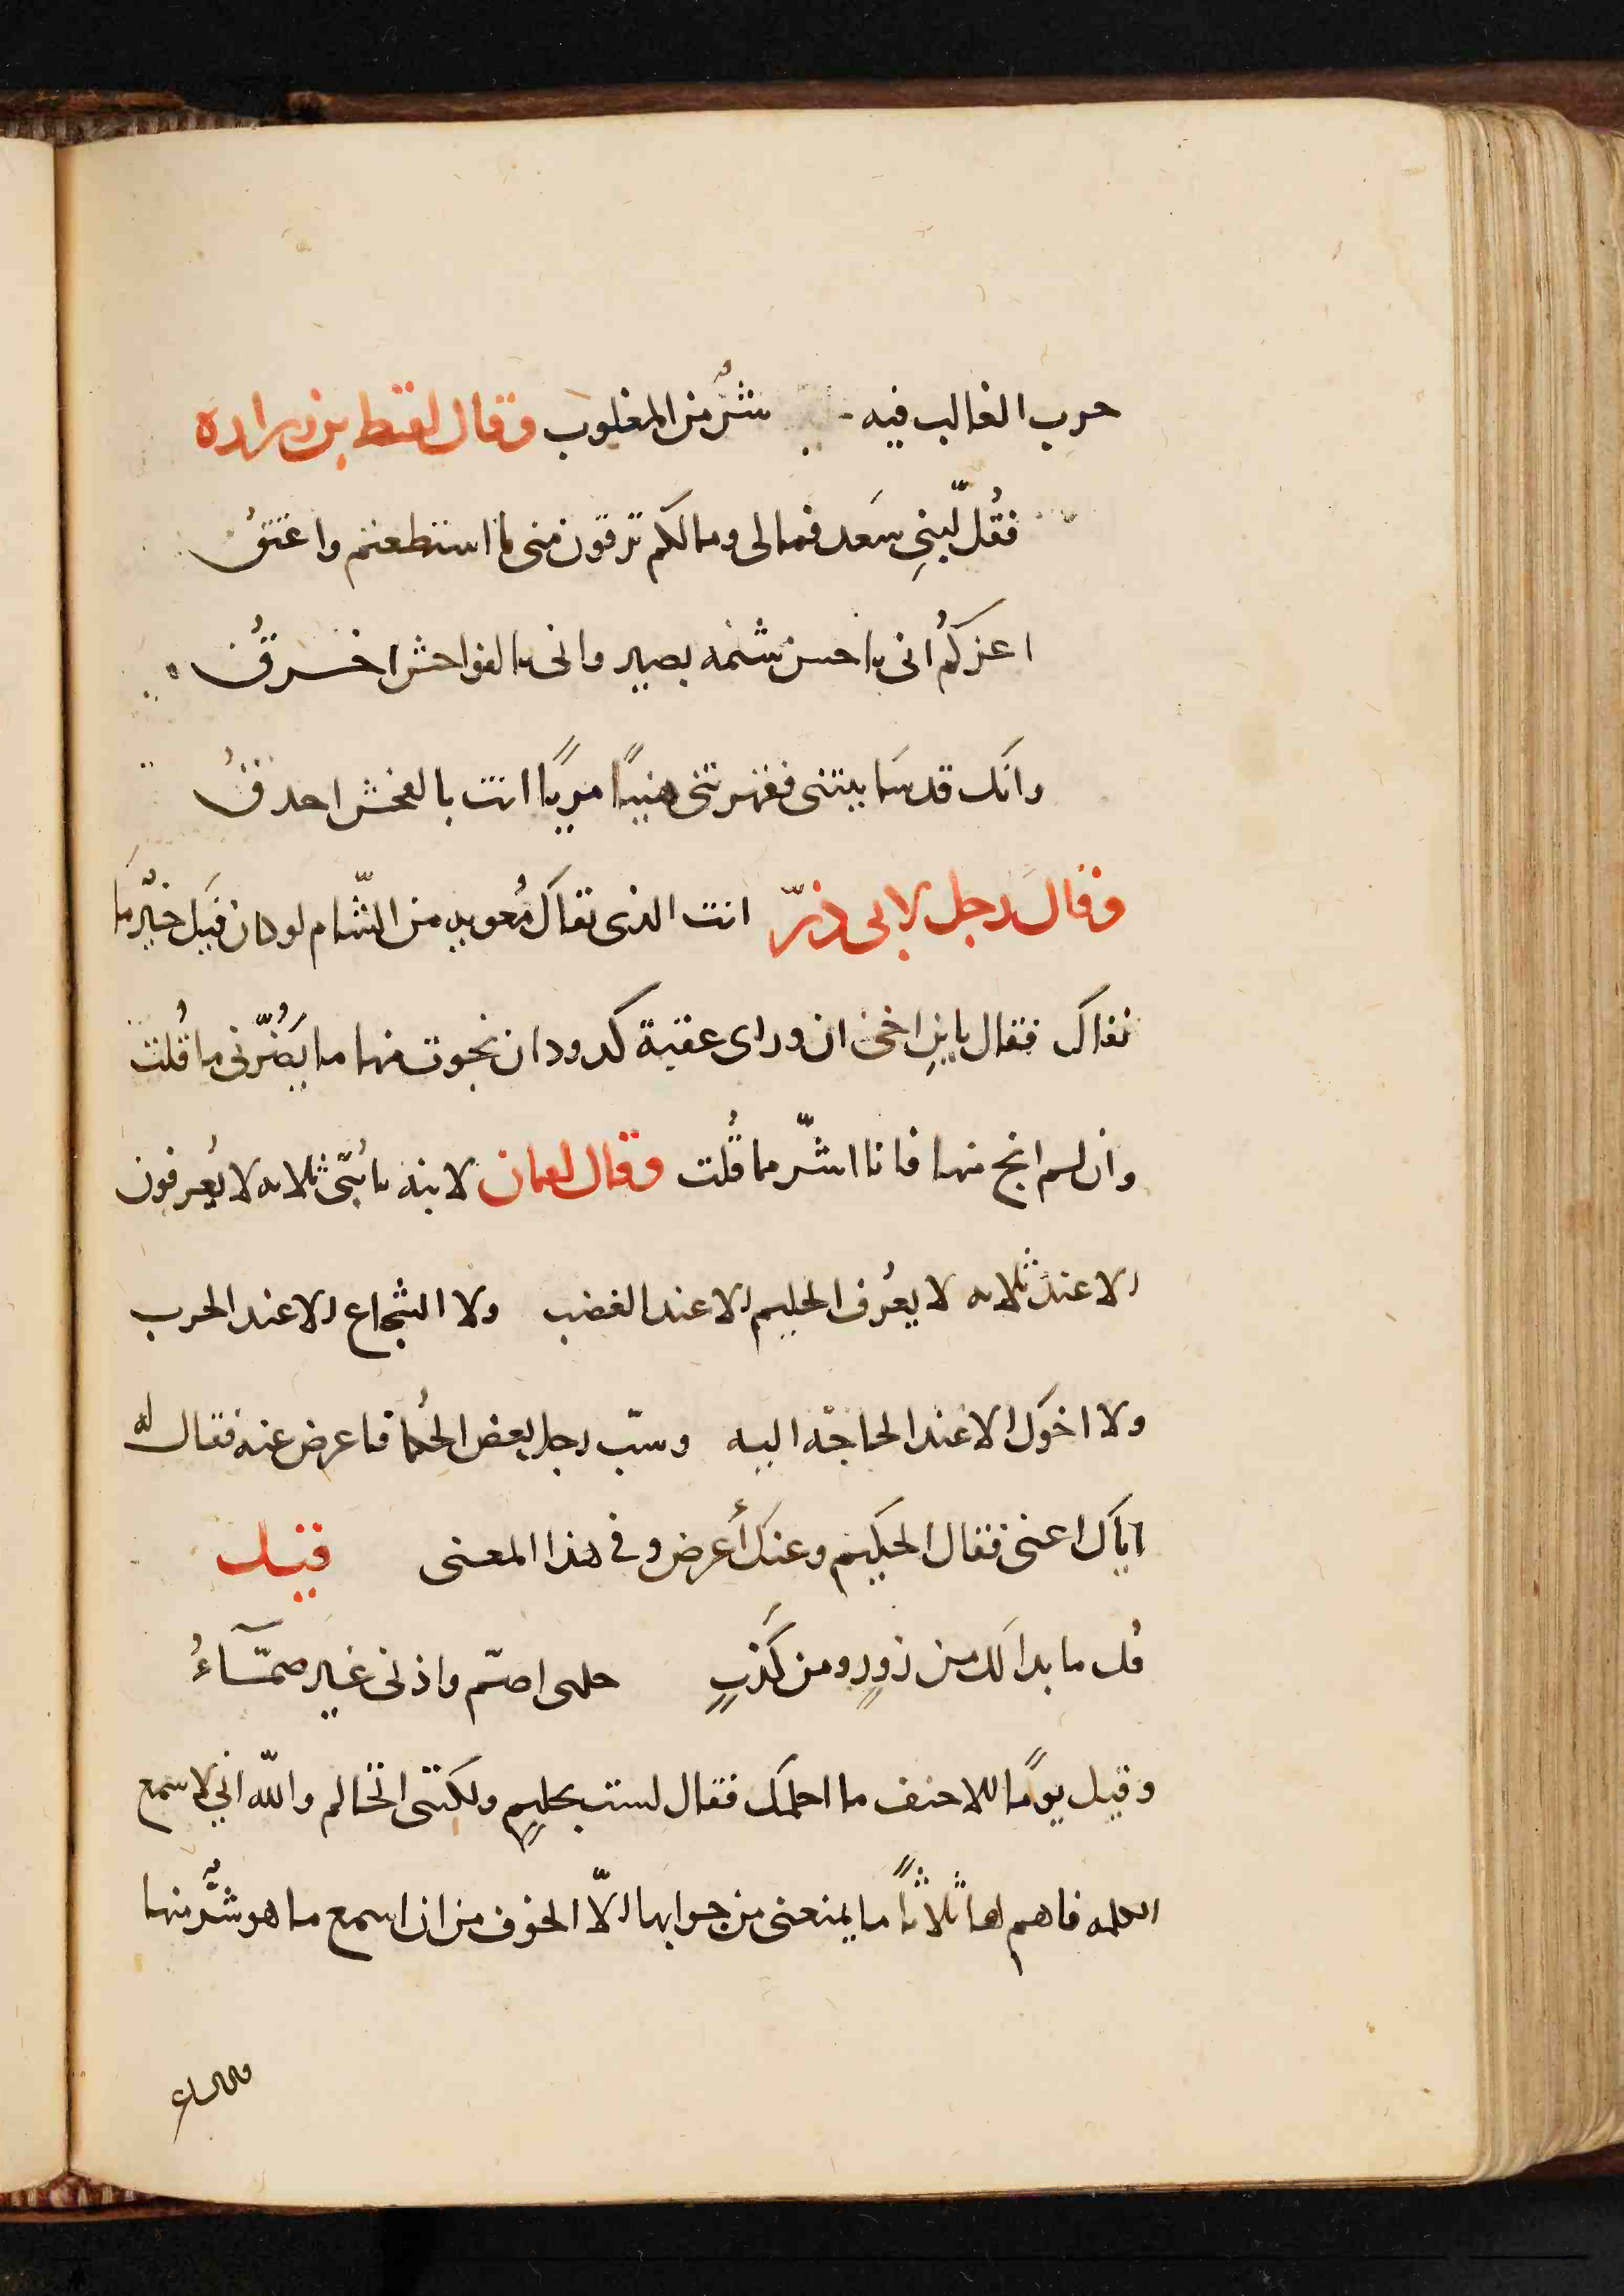 حرب الغالب فيه شرٌّ من المغلوب وقال لقيط بن زراره
فقُل لّبنِى سَعد فمالى ومالكم ترقون منى ما استطعتم واعتقُ
اعزكمُ انى باحسن شيمه بصير وانى بالفواحش اخرقُ
وانَك قد سَاببتنى فقهرتنى هنيـًٔا مريًا انت بالفحش احدقُ
وقالَ رجل لابى ذرّ انت الذى نفاكَ مُعويه من الشّام لو كان فيك خيرٌ ما
نفاك فقال يابنِ اخى ان وراى عقبة كدود ان نجوت منها ما يَضُرّنى ما قُلت
وان لم انج منها فانا اشرّ مما قُلت وقال لقمان لابنه يا بُنَىّ ثلاثه لا يُعرفون
الا عند ثلاثه لا يعُرف الحليم الا عند الغضب ولا الشجاع الا عند الحرب
ولا اخوكَ الا عند الحاجه اليه وسبّ رجل بعض الحُكما فاعرض عنه فقال له
اياكَ اعنى فقال الحكيم وعنكَ أعرض وفى هذا المعنى قيل
قُل ما بدا لَك من زورٍ ومن كَذبٍ حلمى اصمّ واذنى غير صمَّآءُ
وقيل يومًا للاحنف ما احلمك فقال لست بحليمٍ ولكنّنى اتحالم واللّه انى لاسمع
الكلمه فاهم لها ثلاثاً ما يمنعنى من جوابها الّا الخوف من ان اسمع ما هو شرٌّ منها